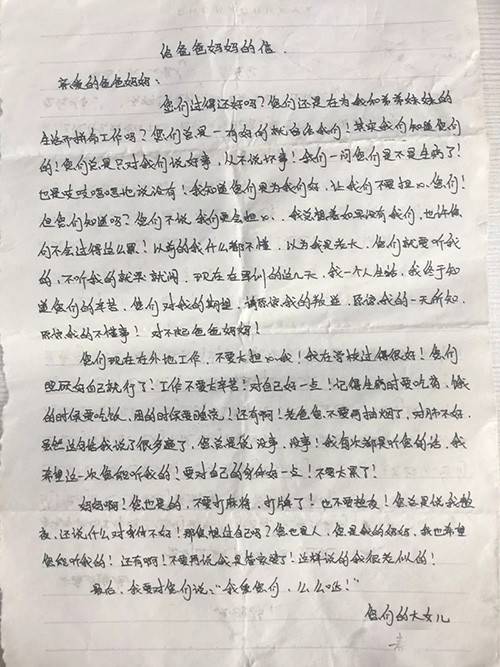 给爸爸妈妈的信.
亲爱的爸爸妈妈:
您们过得还好吗?您们还是在为我和弟弟妹妹的
生活而拼命工作吗?您们总是一有好的就留给我们!其实我们知道您们
的!您们总是只对我们说好事,从不说坏事!我们一问您们是不是生病了!
也是吱吱唔唔地说没有!我知道您们是为我们好,让我们不要担心您们!
但您们知道吗?您们不说我们更会担心.我总想着如果没有我们,也许你
们不会过得这么累!以前的我什么都不懂,以为我是老大,您们就要听我
的,不听我的就哭就闹.现在在军训的这几天,我一个人生活,我终于知
道您们的辛苦,您们对我的期望,请原谅我的叛逆,原谅我的一无所知,
原谅我的不懂事!对不起爸爸妈妈!
您们现在在外地工作,不要太担心我!我在学校过得很好!您们
照顾好自己就行了!工作不要太辛苦!对自己好一点!记得生病时要吃药,饿
的时候要吃饭,困的时候要睡觉!还有啊!老爸爸不要再抽烟了,对肺不好.
虽然这句话我说了很多遍了,您总是说,没事,没事!我每次都是听您的话,我
希望这一次您能听我的!要对自己的身体好一点!不要太累了!
妈妈啊!您也是的,不要打麻将,打牌了!也不要熬夜!您总是说我熬
夜,还说什么对身体不好!那您想过自己吗?您也是人,您是我的妈妈,我也希望
您能听我的!还有啊!不要再说我是管家婆了!这样说的我很老似的!
最后,我要对您们说:"我爱您们,么么哒!"
您们的大女儿